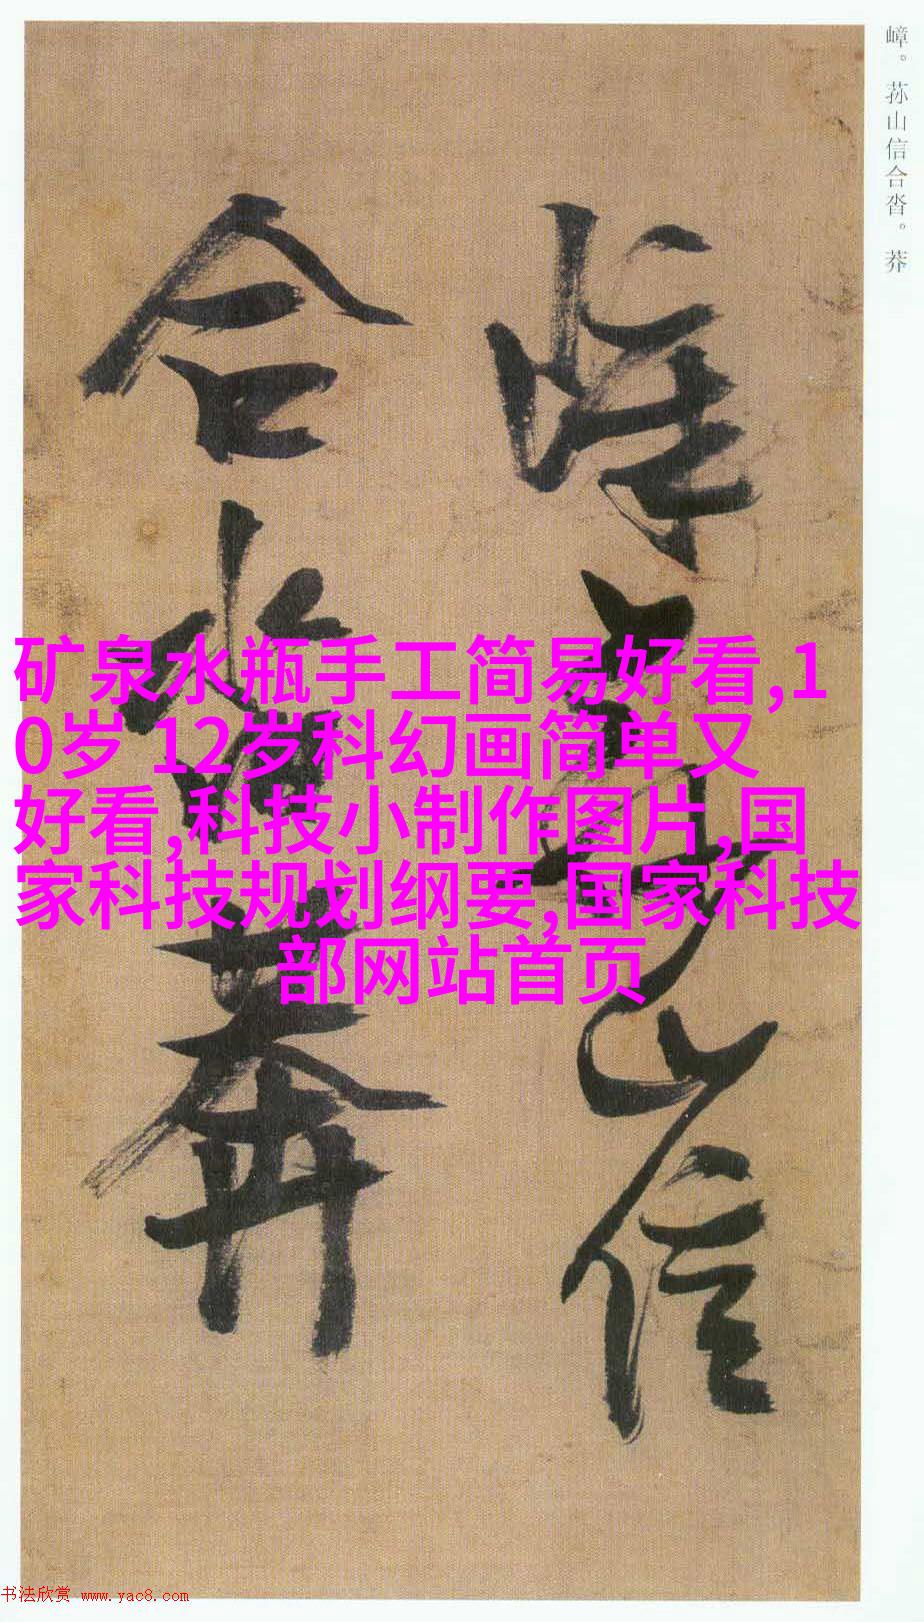 嶂。荪山信合沓。莽
嶂荪山信
合沓莽
矿泉水瓶手工简易好看,1
0岁 12岁科幻画简单又
好看,科技小制作图片,国
家科技规划纲要,国家科技
部网站首页
书法欣赏 www.yac8.com